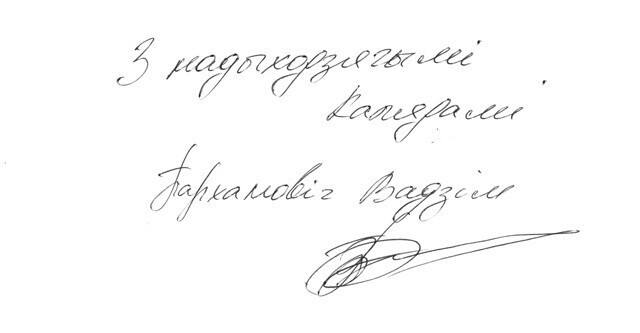 З надыходзячымі
Калядамі
Пархамовіч Вадзім